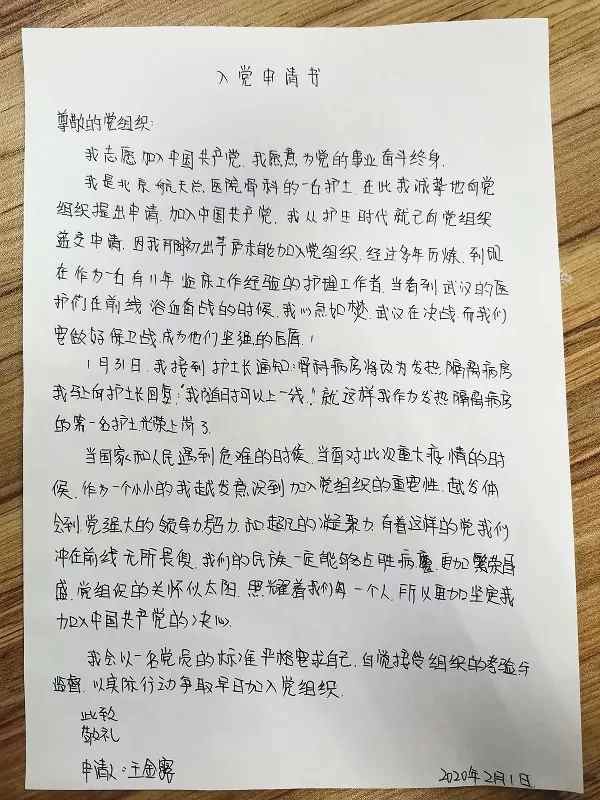 入党申请书
尊敬的党组织:
我志愿加入中国共产党,我愿意为党的事业奋斗终身.
我是北京航天总医院骨科的一名护士,在此我诚挚地向党
组织提出申请,加入中国共产党,我从护生时代就已向党组织
递交申请,因我刚初出茅庐未能加入党组织,经过多年历炼,到现
在作为一名有11年临床工作经验的护理工作者,当看到武汉的医
护们在前线浴血奋战的时候,我心急如焚,武汉在决战,而我们
要做好保卫战,成为他们坚强的后盾!
1月31日,我接到护士长通知:骨科病房将改为发热隔离病房
我马上向护士长回复:"我随时可以上一线."就这样我作为发热隔离病房
的第一名护士光荣上岗了.
当国家和人民遇到危难的时候,当面对此次重大疫情的时
候,作为一个小小的我越发意识到加入党组织的重要性,越发体
会到党强大的领导力,号召力,和超凡的凝聚力,有着这样的党我们
冲在前线无所畏惧,我们的民族一定能够占胜病魔,更加繁荣昌
盛,党组织的关怀似太阳,照耀着我们每一个人,所以更加坚定我
加入中国共产党的决心.
我会以一名党员的标准严格要求自己,自觉接受组织的考验与
监督,以实际行动争取早日加入党组织.
此致
敬礼
申请人:王金露
2020年2月1日.